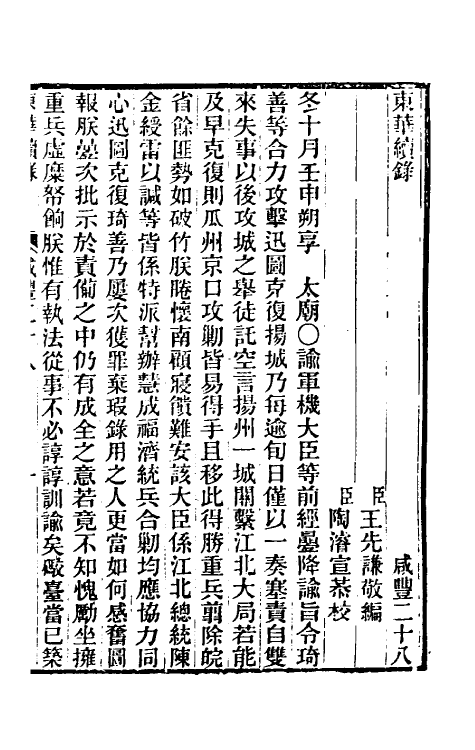 東華續錄
咸豐二十八
臣王先謙敬編
臣陶濬宣恭校
冬十月壬申朔享　太廟○諭軍機大臣等前經疊降諭旨令琦
善等合力攻擊迅圖克復揚城乃每逾旬日僅以一奏塞責自雙
來失事以後攻城之舉徒託空言揚州一城關繫江北大局若能
及早克復則瓜州京口攻剿皆易得手且移此得勝重兵翦除皖
省餘匪勢如破竹朕睠懷南顧寢饋難安該大臣係江北總統陳
金綬雷以諴等皆係特派幫辦慧成福濟統兵合剿均應協力同
心迅圖克復琦善乃屢次獲罪棄瑕錄用之人更當如何感奮圖
報朕疊次批示於責備之中仍有成全之意若竟不知愧勵坐擁
重兵虛糜帑餉朕惟有執法從事不必諄諄訓諭矣礮臺當已築
東華續錄　咸豐二十八　一